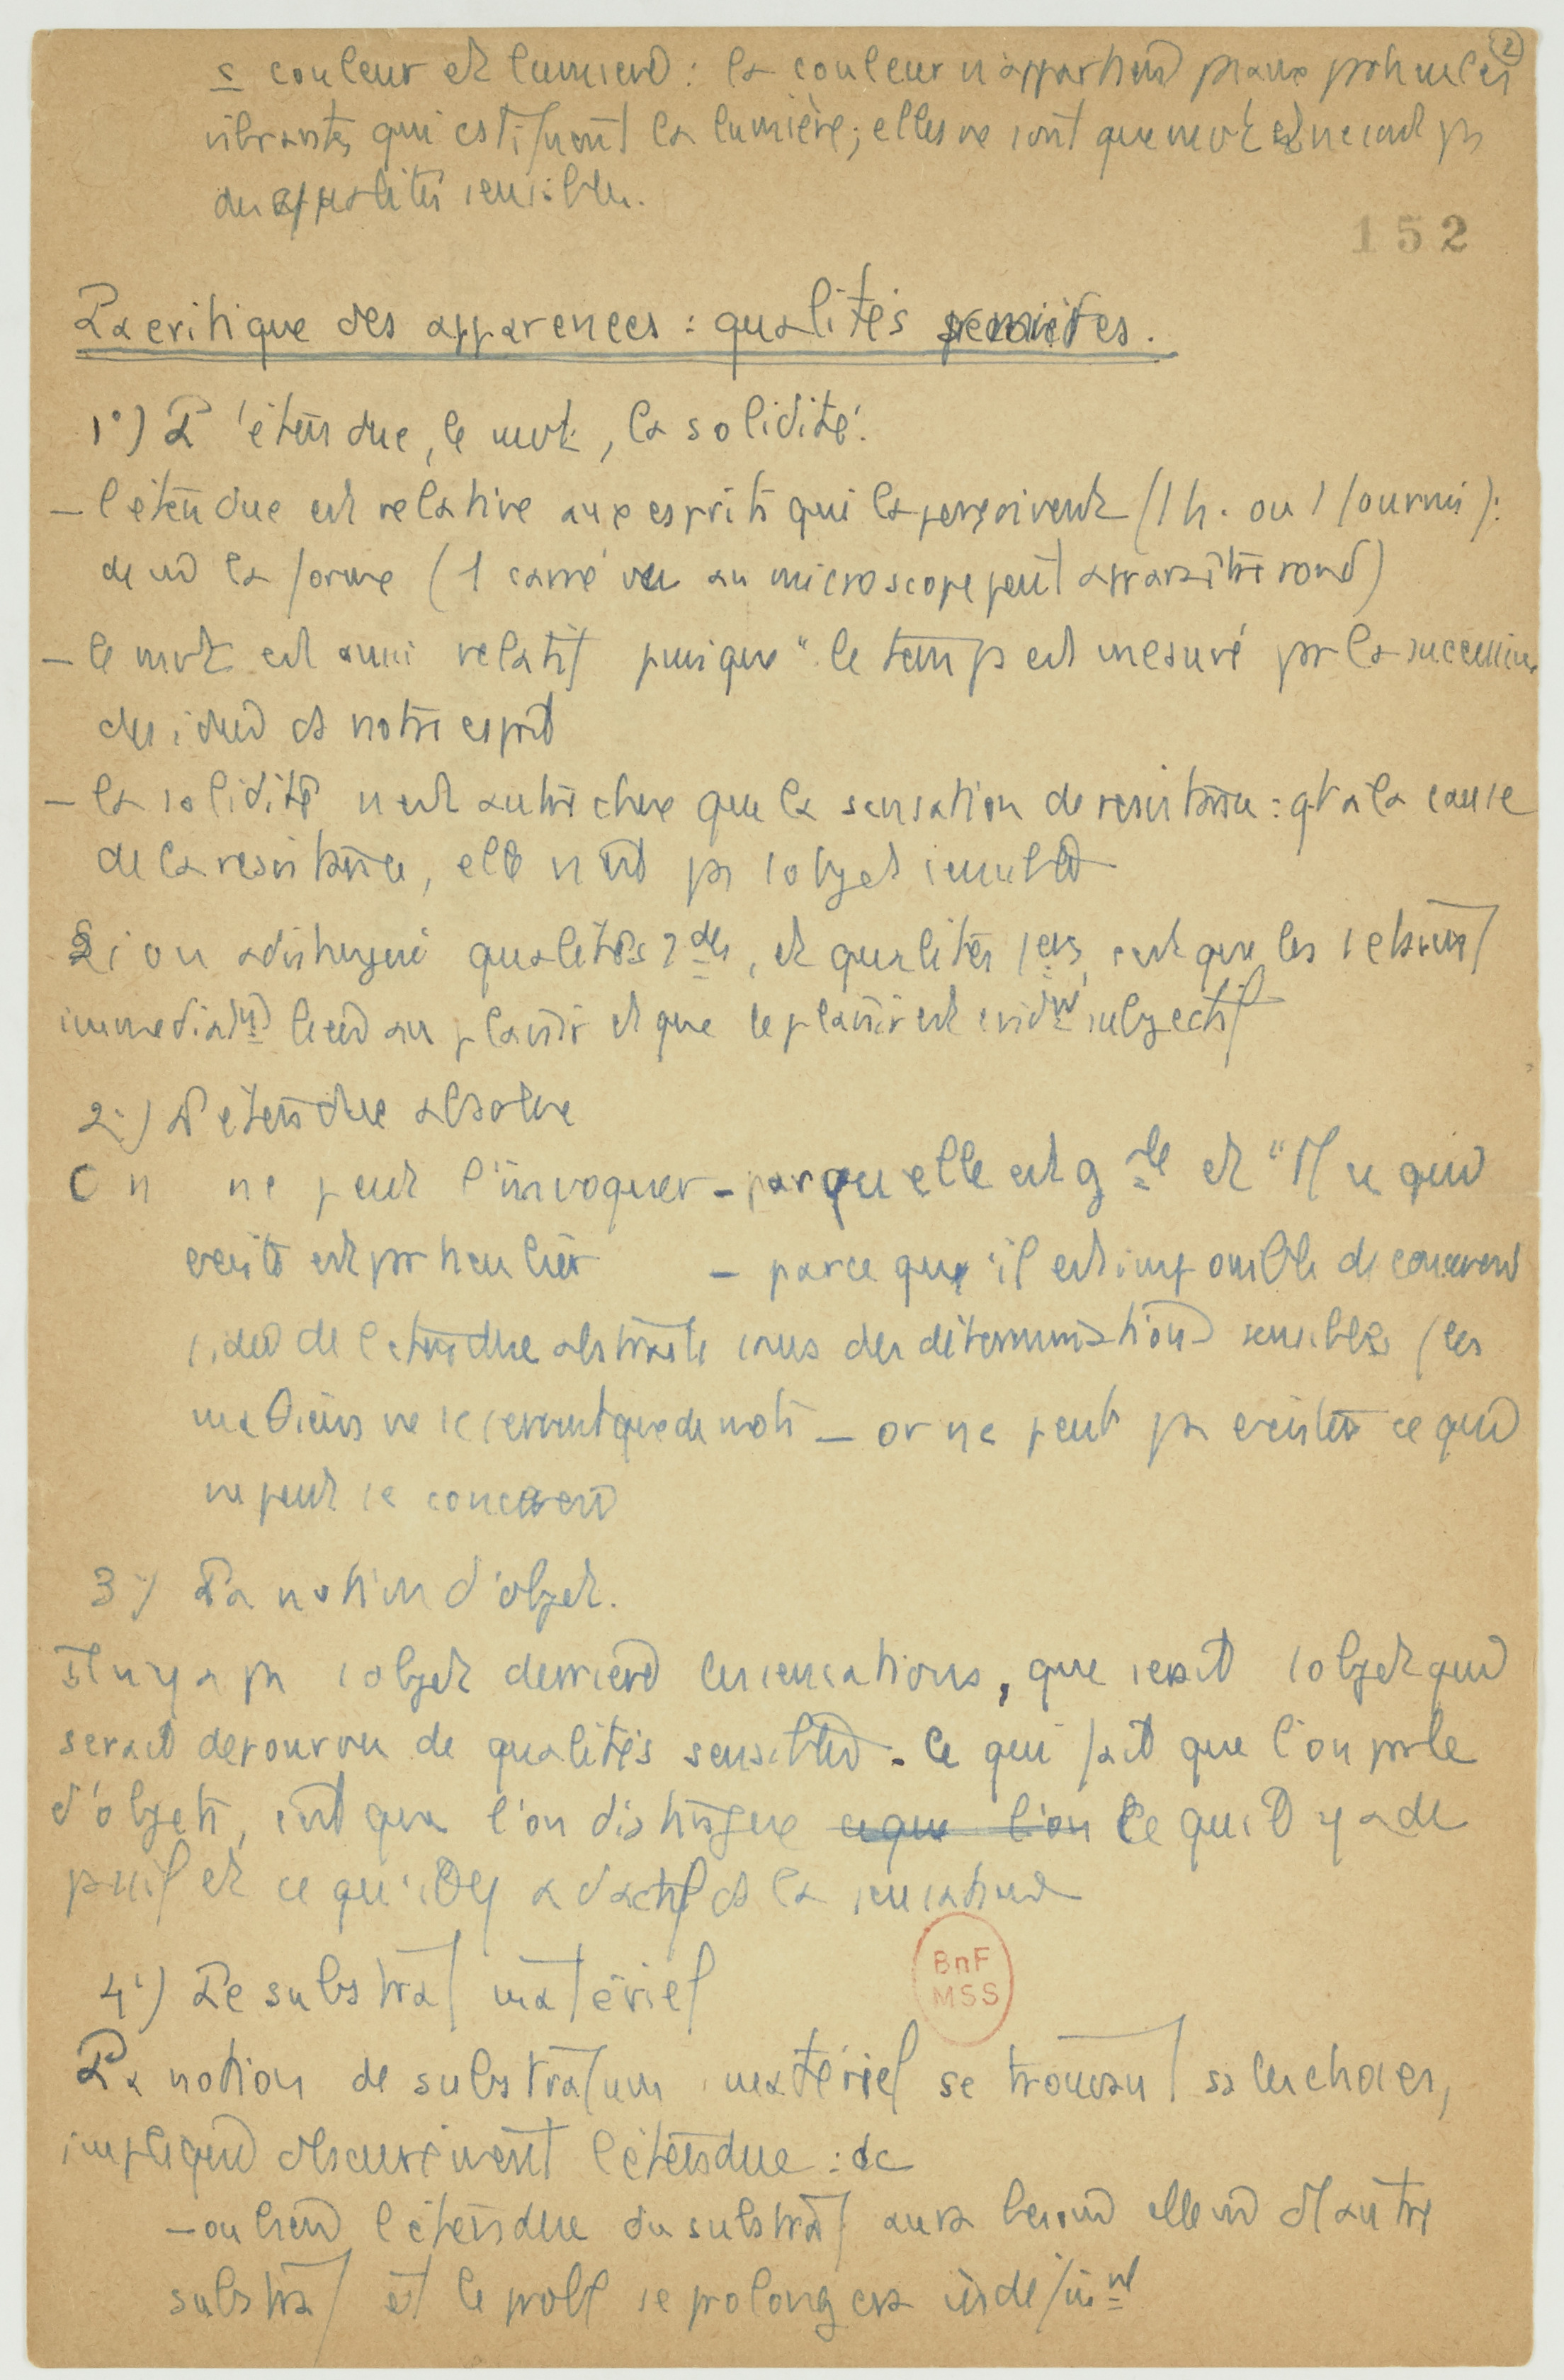 ②
c couleur et lumière : la couleur n'appartient pas aux particules
vibrantes qui constituent la lumière; elles ne sont que mvt et ne sont pas
des qualités sensibles.
152
La critique des apparences : qualités premières.
1°) L'étendue, le mvt, la solidité.
– l'étendue est relative aux esprits qui la perçoivent (1 h. ou 1 fourmi) :
de m la forme (1 carré vu au microscope peut apparaître rond)
– le mvt est aussi relatif puisque "le temps est mesuré par la succession
des idées ds notre esprit
– la solidité n'est autre chose que la sensation de résistance : qt à la cause
de la résistance, elle n'est pas 1 objet sensible
Si on a distingué qualités 2des, et qualités 1eres, c'est que les 1e sont
immédiatmt liées au plaisir et que le plaisir est évidmt subjectif
2°) L'étendue absolue
On ne peut l'invoquer – parce qu'elle est gale et "Tt ce qui
existe est particulier – parce qu'il est impossible de concevoir
1 idée de l'étendue abstraite sans des déterminations sensibles (les
mathciens ne se servent que de mots – or ne peut pas exister ce qui
ne peut se concevoir
3°) La notion d'objet.
Il n'y a pas 1 objet derrière les sensations, que serait 1 objet qui
serait dépourvu de qualités sensibles. Ce qui fait que l'on parle
d'objets, c'est que l'on distingue ce que l'on Ce qu'il y a de
passif et ce qu'il y a d'actif ds la sensation
4°) Le substrat matériel
La notion de substratum matériel se trouvant ss les choses,
implique obscurément l'étendue : dc
– ou bien l'étendue du substrat aura besoin elle m d'1 autre
substrat et le probl se prolongera indéfinmt
BnF
MSS